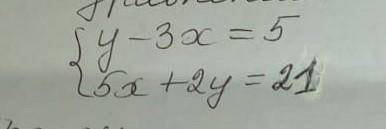 y - 3x = 5
5x + 2y = 21